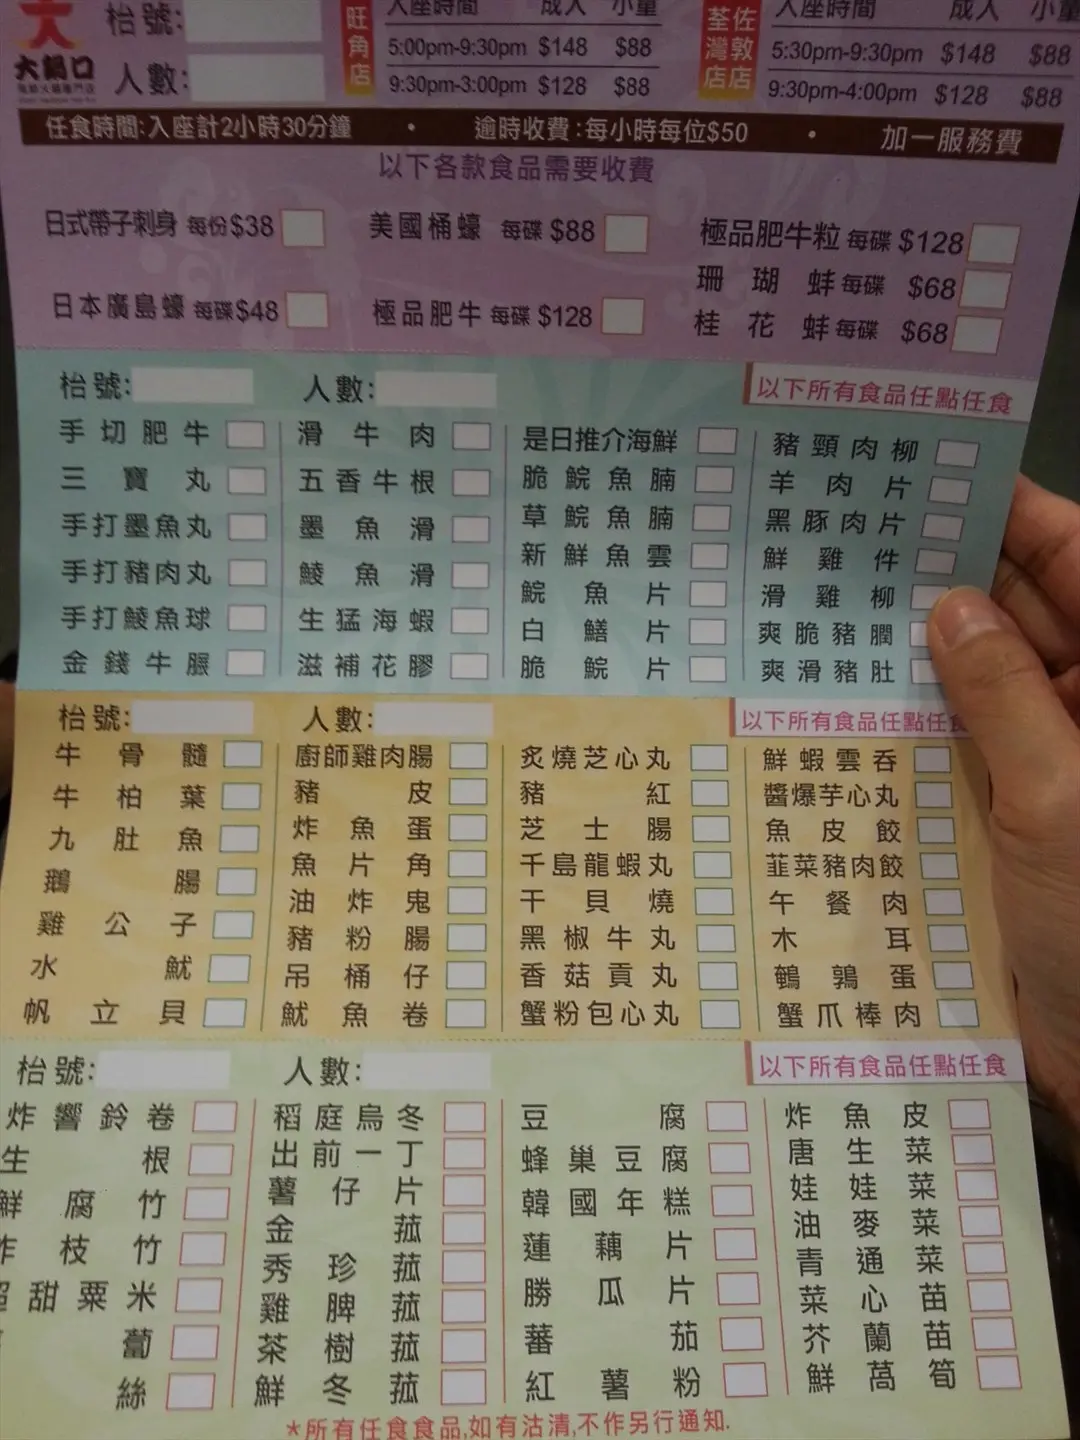 大鍋口
枱號:
人數:
旺角店
入座時間 成人 小童
5:00pm-9:30pm $148 $88
9:30pm-3:00pm $128 $88
荃灣店 佐敦店
入座時間 成人 小童
5:30pm-9:30pm $148 $88
9:30pm-4:00pm $128 $88
任食時間:入座計2小時30分鐘 • 逾時收費:每小時每位$50 • 加一服務費
以下各款食品需要收費
日式帶子刺身 每份$38
美國桶蠔 每碟 $88
極品肥牛粒 每碟 $128
珊瑚蚌 每碟 $68
日本廣島蠔 每碟$48
極品肥牛 每碟 $128
桂花蚌 每碟 $68
枱號: 人數: 以下所有食品任點任食
手切肥牛
三寶丸
手打墨魚丸
手打豬肉丸
手打鯪魚球
金錢牛𦟌
滑牛肉
五香牛根
墨魚滑
鯪魚滑
生猛海蝦
滋補花膠
是日推介海鮮
脆鯇魚腩
草鯇魚腩
新鮮魚雲
鯇魚片
白鱔片
脆鯇片
豬頸肉柳
羊肉片
黑豚肉片
鮮雞件
滑雞柳
爽脆豬膶
爽滑豬肚
枱號: 人數: 以下所有食品任點任食
牛骨髓
牛柏葉
九肚魚
鵝腸
雞公子
水魷
帆立貝
廚師雞肉腸
豬皮
炸魚蛋
魚片角
油炸鬼
豬粉腸
吊桶仔
魷魚卷
炙燒芝心丸
豬紅
芝士腸
千島龍蝦丸
干貝燒
黑椒牛丸
香菇貢丸
蟹粉包心丸
鮮蝦雲吞
醬爆芋心丸
魚皮餃
韮菜豬肉餃
午餐肉
木耳
鵪鶉蛋
蟹爪棒肉
枱號: 人數: 以下所有食品任點任食
炸響鈴卷
生根
鮮腐竹
炸枝竹
甜粟米
蔔
絲
稻庭烏冬
出前一丁
薯仔片
金菰
秀珍菰
雞脾菰
茶樹菰
鮮冬菰
豆腐
蜂巢豆腐
韓國年糕
蓮藕片
勝瓜片
蕃茄
紅薯粉
炸魚皮
唐生菜
娃娃菜
油麥菜
青通菜
菜心苗
芥蘭苗
鮮萵筍
*所有任食食品,如有沽清,不作另行通知.